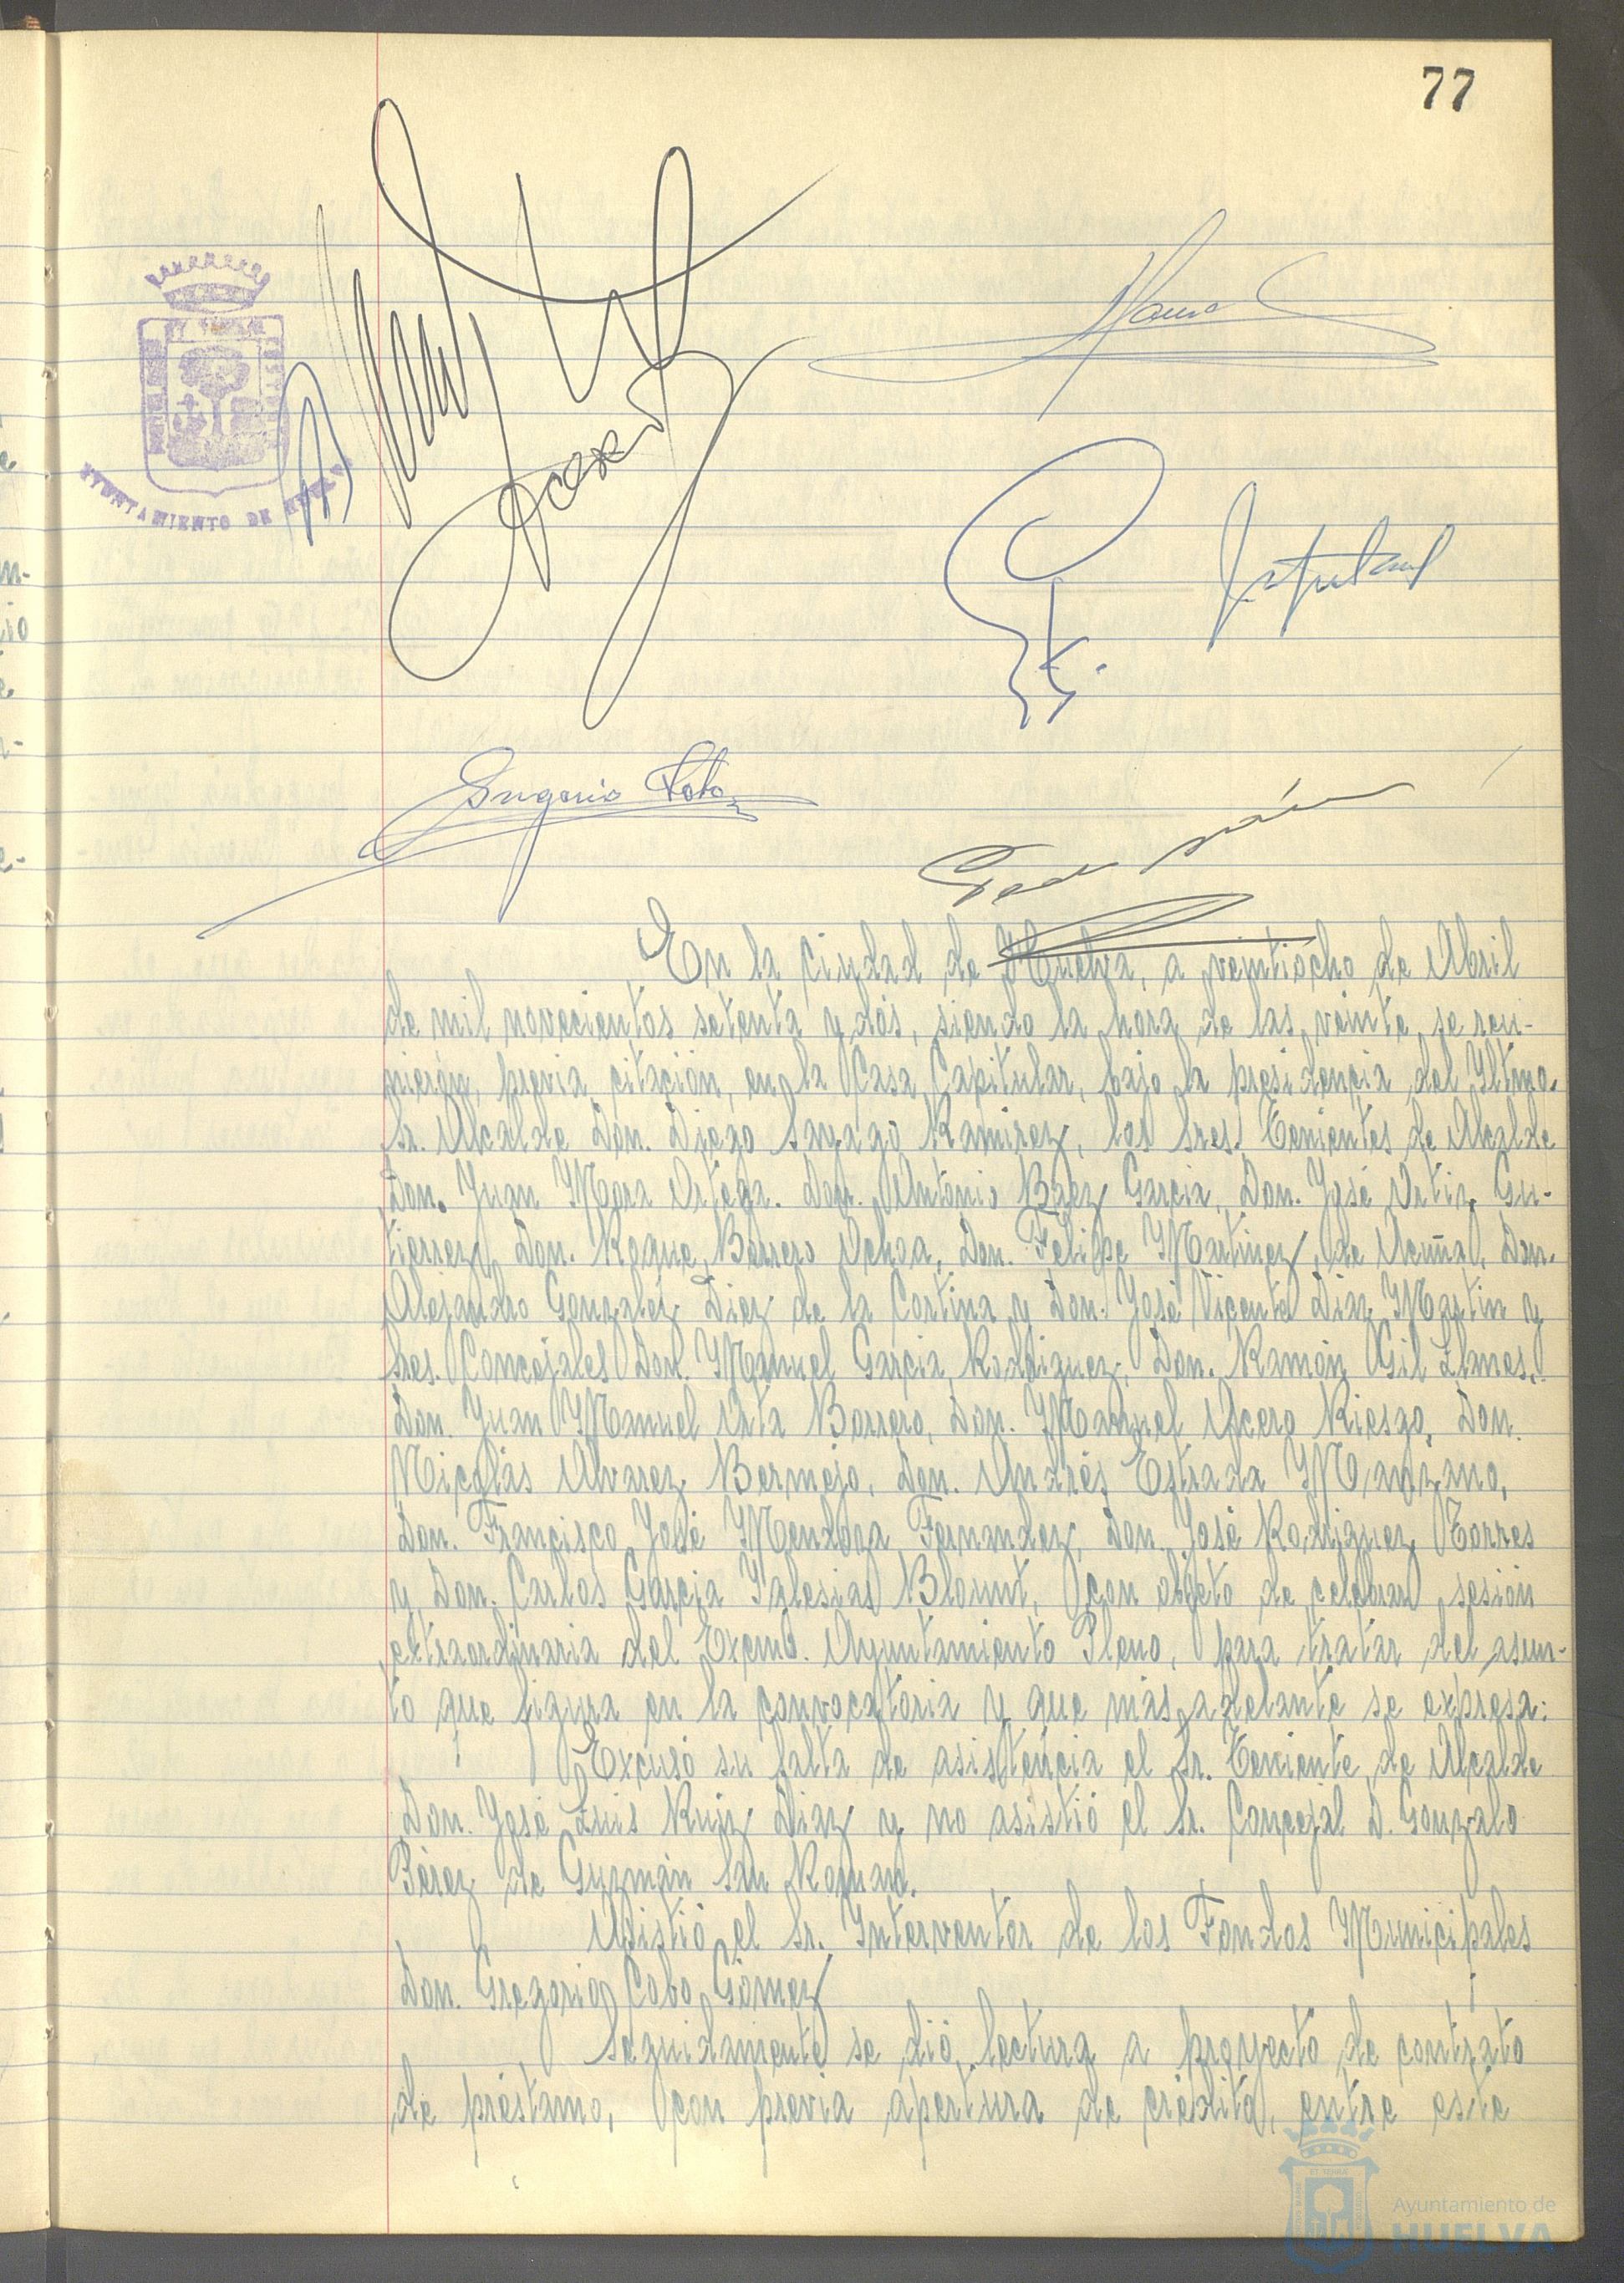 77
AYUNTAMIENTO DE HUELVA
Eugenio
En la ciudad de Huelva, a veintiocho de Abril
de mil novecientos setenta y dós, siendo la hora de las veinte, se reu-
nierón, previa citación, en la Casa Capitular, bajo la presidencia del Iltmo.
Sr. Alcalde Don. Diego Sayago Ramirez, los Sres. Tenientes de Alcalde
Don. Juan Mora Ortega. Don. Antonio Baez Garcia, Don. José Ortiz Gu-
tierrez, Don. Roque Barrero Ochoa, Don. Felipe Martinez de Acuña, Don.
Alejandro Gonzalez Diez de la Cortina y Don. José Vicente Diaz Martin y
Sres. Concejales Don. Manuel Garcia Rodriguez, Don. Ramón Gil Llanes,
Don. Juan Manuel Orta Borrero, Don. Manuel Acero Riesgo, Don.
Nicolás Alvarez Bermejo, Don. Andrés Estrada Manzano,
Don. Francisco José Mendoza Fernandez, Don. José Rodriguez Torres
y Don. Carlos Garcia Iglesias Blount, con objeto de celebrar sesión
extraordinaria del Excmo. Ayuntamiento Pleno, para tratar del asun-
to que figura en la convocatoria y que más adelante se expresa:
Excusó su falta de asistencia el Sr. Teniente de Alcalde
Don. José Luis Ruiz Diaz y no asistió el Sr. Concejal D. Gonzalo
Pérez de Guzmán San Roman.
Asistió el Sr. Interventor de los Fondos Municipales
Don. Gregorio Cobo Gómez
Seguidamente se dió lectura a proyecto de contrato
de préstamo, con previa apertura de crédito, entre este
Ayuntamiento de
HUELVA